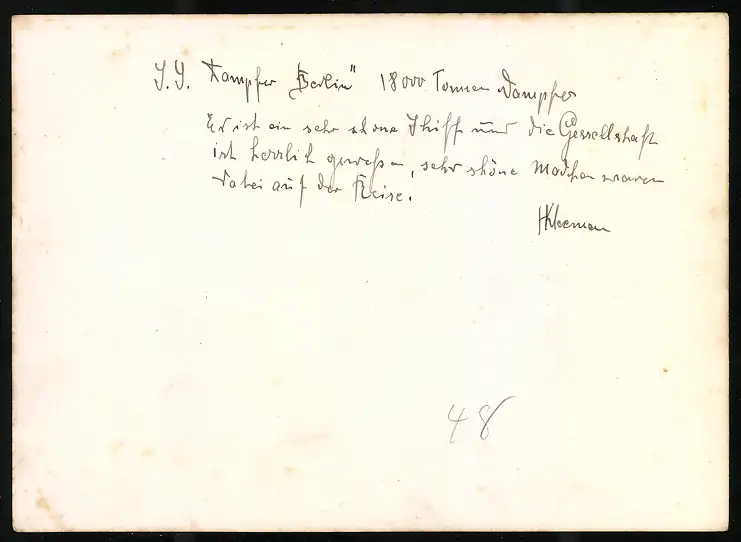 S.S. Dampfer "Berlin" 18000 Tonnen Dampfer
Er ist ein sehr shone Shiff und die Gessellshaft
ist herrlich gewessen, sehr shöne Madhen waren
dabei auf der Reise.
HKleeman
48